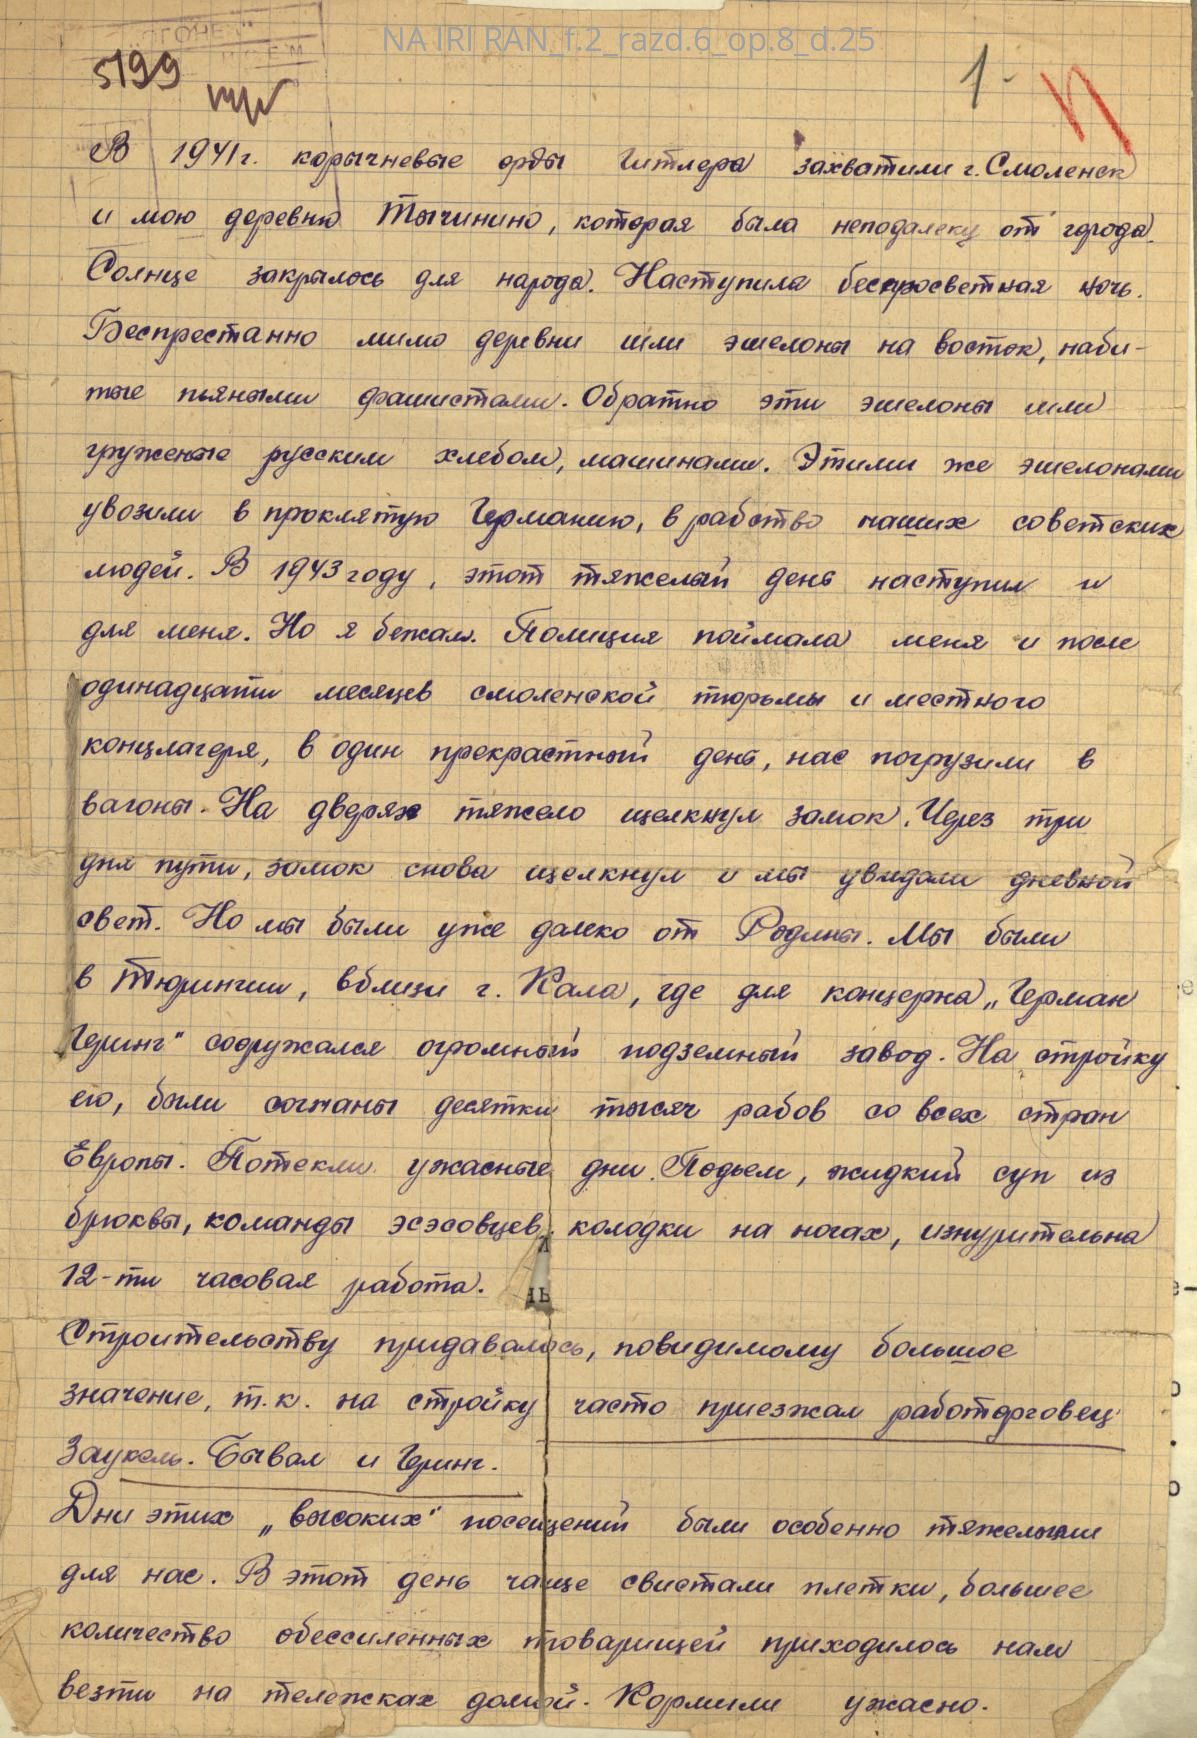 NA IRI RAN_f.2_razd.6_op.8_d.25
5199
1-
В 1941г. корычневые орды Гитлера захватили г. Смоленск
и мою деревню Тычинино, которая была неподалеку от города.
Солнце закрылось для народа. Наступила беспросветная ночь.
Беспрестанно мимо деревни шли эшелоны на восток, наби-
тые пьяными фашистами. Обратно эти эшелоны шли
груженые русским хлебом, машинами. Этими же эшелонами
увозили в проклятую Германию, в рабство наших советских
людей. В 1943 году, этот тяжелый день наступил и
для меня. Но я бежал. Полиция поймала меня и после
одинадцати месяцев смоленской тюрьмы и местного
концлагеря, в один прекрастный день, нас погрузили в
вагоны. На дверях тяжело щелкнул замок. Через три
дня пути, замок снова щелкнул и мы увидали дневной
свет. Но мы были уже далеко от Родины. Мы были
в Тюрингии, вблизи г. Кала, где для концерна „Герман
Геринг" содружался огромный подземный завод. На стройку
его, были согнаны десятки тысяч рабов со всех стран
Европы. Потекли ужасные дни. Подьем, жидкий суп из
брюквы, команды эсэсовцев, колодки на ногах, изнурительна
12-ти часовая работа.
Строительству придавалось, повидимому большое
значение, т.к. на стройку часто приезжал работорговец
Заукель. Бывал и Геринг.
Дни этих „высоких" посещений были особенно тяжелыми
для нас. В этот день чаще свистали плетки, большее
количество обессиленных товарищей приходилось нам
везти на тележках домой. Кормили ужасно.